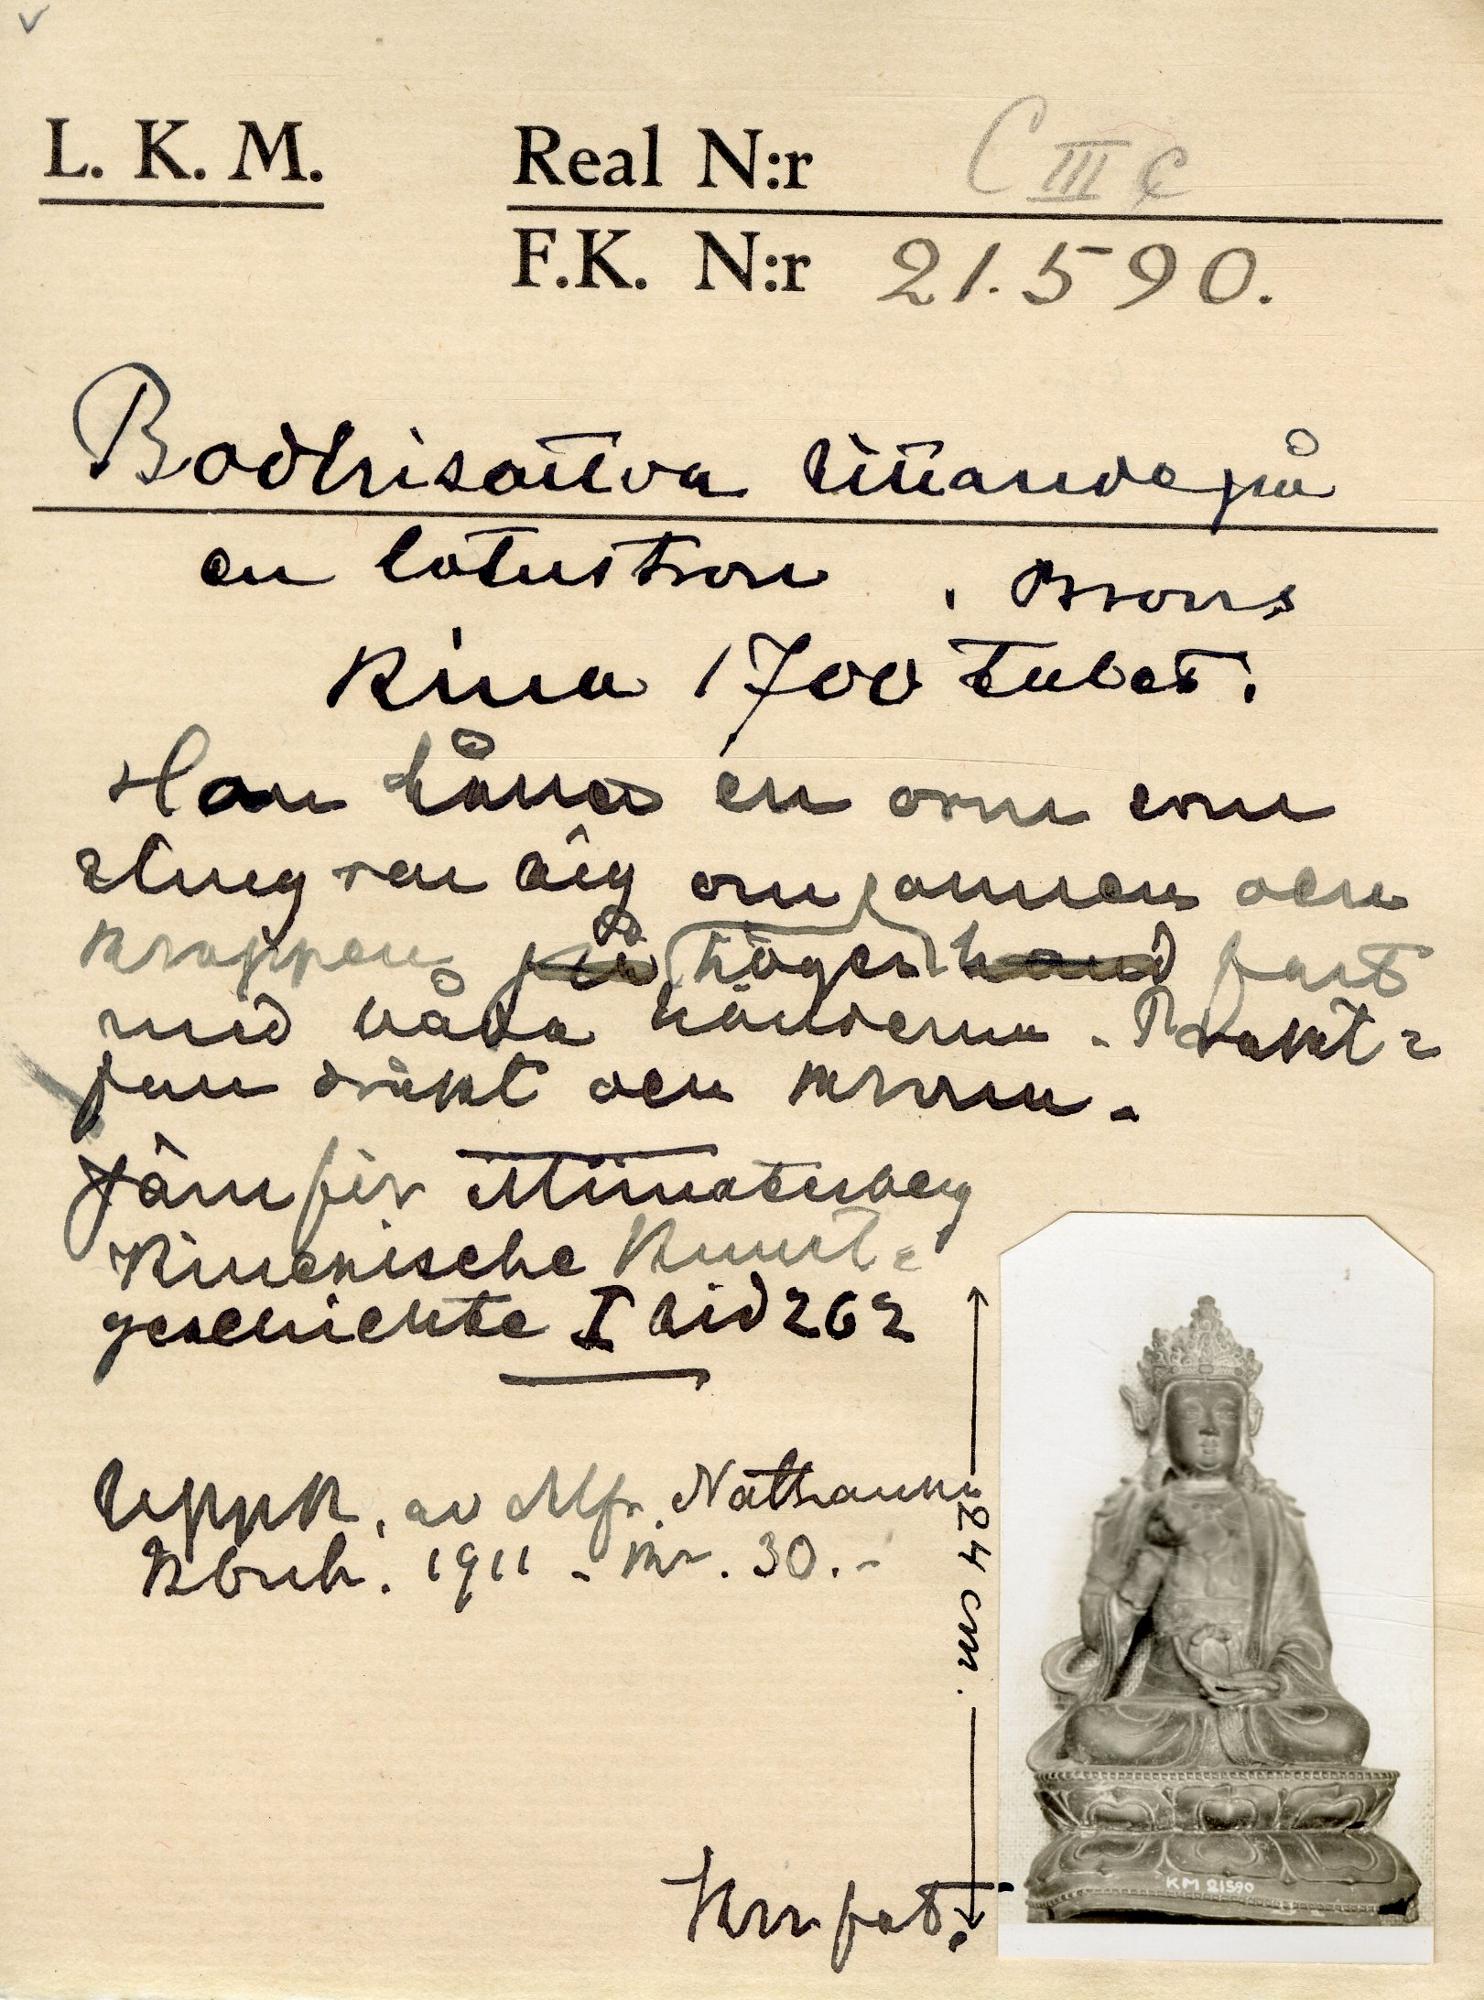 L. K. M.
Real N:r C III c
F.K. N:r 21.590.
Bodhisattva sittande på
en lotustron. Brons
Kina 1700 talet.
Han håller en orm som
slingrar sig om armen och
kroppen på höger hand fast
med båda händerna. Prakt=
full dräkt och krona.
Jämför Münsterberg
Kinesische Kunst=
geschichte I sid 262
Uppk. av Alfr. Nathans
Kbnh. 1911 - kr. 30.-
24 cm.
fat.
KM 21590